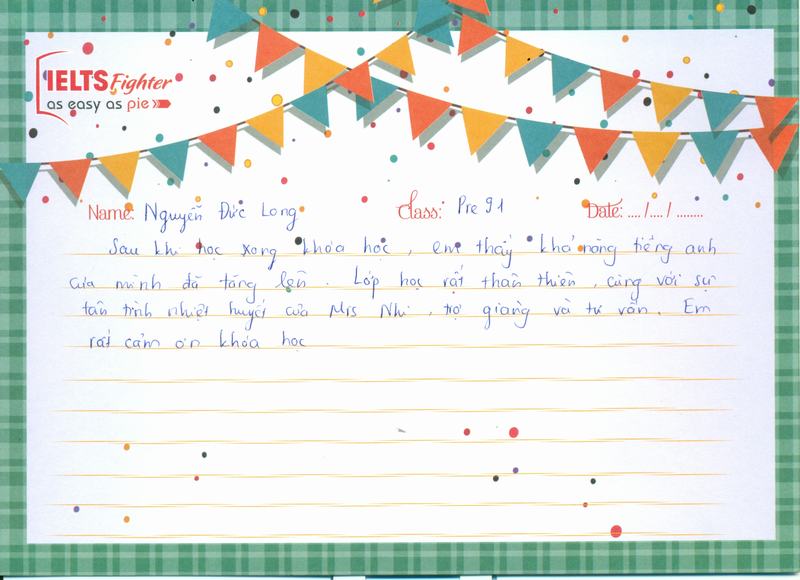 IELTS Fighter
as easy as pie
Name: Nguyễn Đức Long Class: Pre 91 Date: .... /.... / ........
Sau khi học xong khóa học, em thấy khả năng tiếng anh
của mình đã tăng lên. Lớp học rất thân thiện, cùng với sự
tân trình nhiệt huyết của Mrs Nhi, trợ giảng và tư vấn. Em
rất cảm ơn khóa học